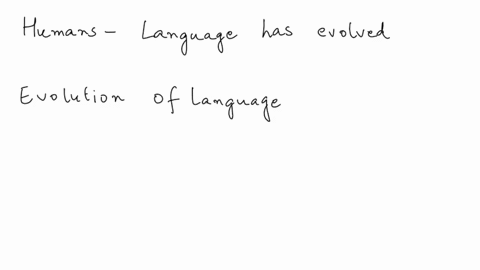 Humans - Language has evolved
Evolution of Language